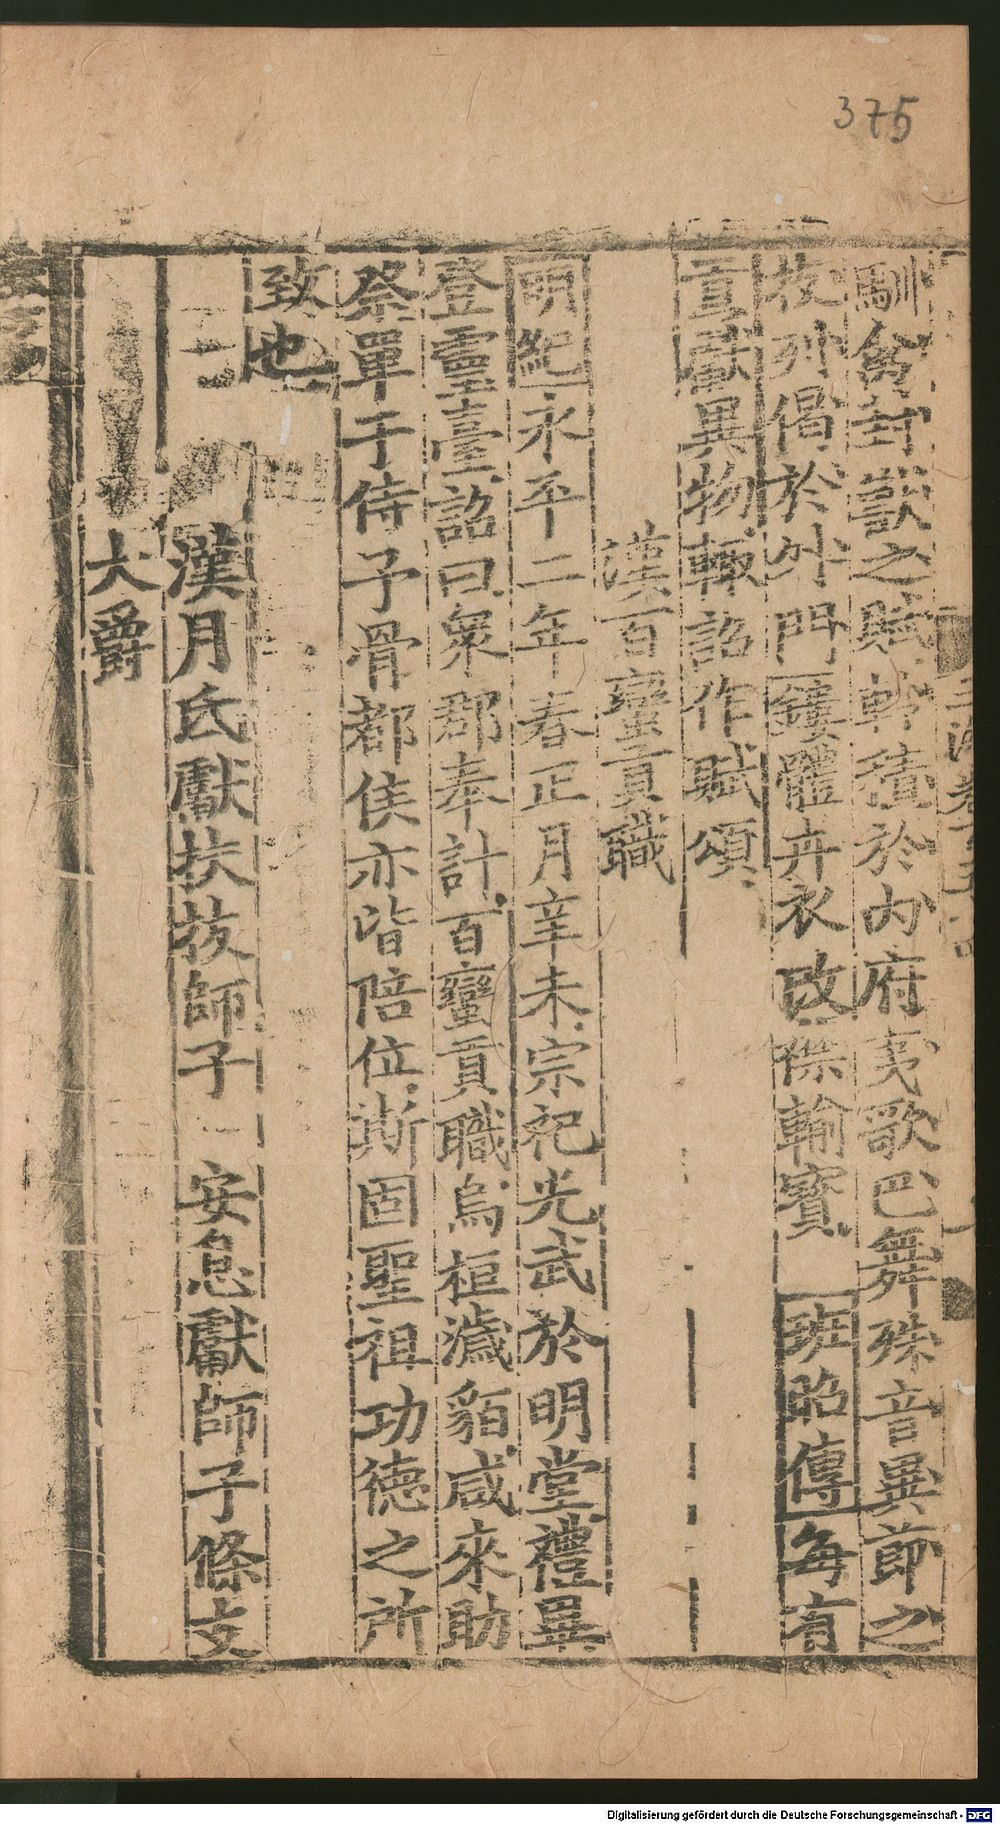 375
馴禽封獸之賦軨積於內府夷歌巴舞殊音異節之
技列倡於外門鏤體卉衣改襟輸寶 班昭傳每有
貢獻異物輙詔作賦頌
漢百蠻貢職
明紀永平二年春正月辛未宗祀光武於明堂禮畢
登靈臺詔曰衆郡奉計百蠻貢職烏桓濊貊咸來助
祭單于侍子骨都侯亦皆陪位斯固聖祖功德之所
致也
漢月氏獻扶拔師子 安息獻師子條支
大爵
Digitalisierung gefördert durch die Deutsche Forschungsgemeinschaft - DFG